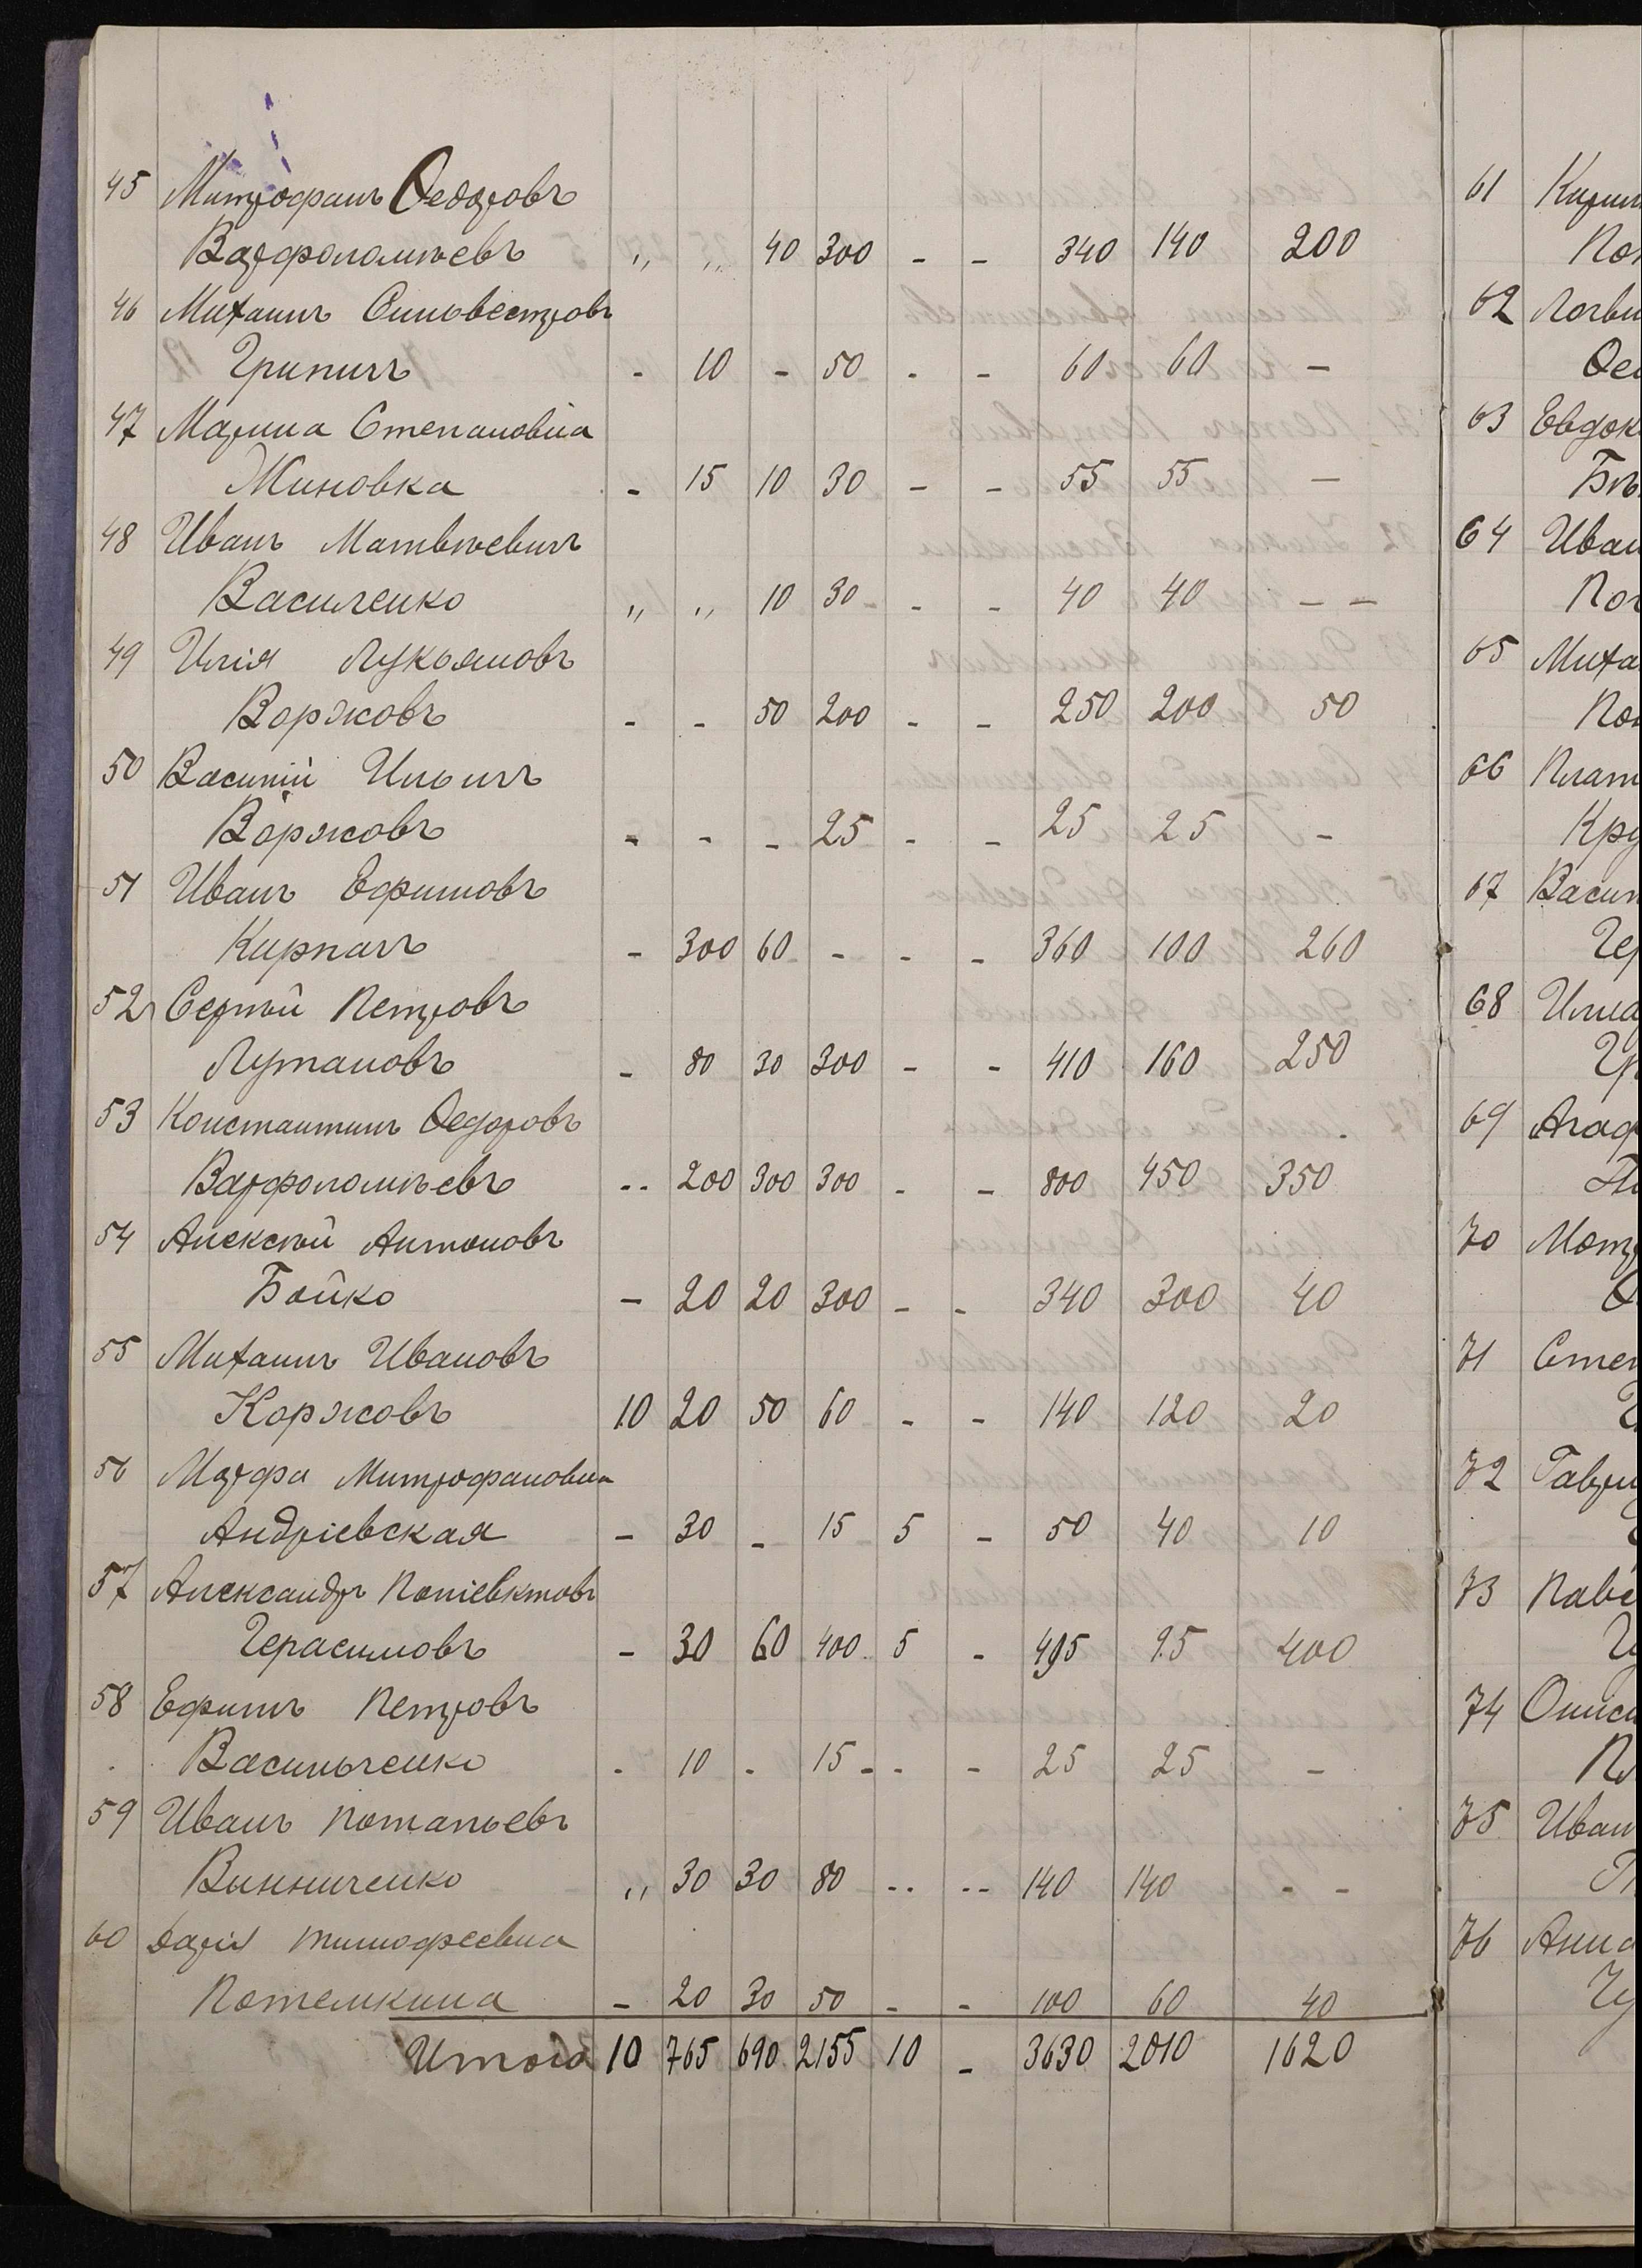 45 Митрофанъ Ѳедоровъ
Варфоломѣевъ " " 40 300 - - 340 140 200
46 Михаилъ Сильвестровъ
Грипичъ - 10 - 50 - - 60 60 -
47 Марина Степановна
Жиновка - 15 10 30 - - 55 55 -
48 Иванъ Матвѣевичъ
Василенко " " 10 30 - - 40 40 - -
49 Илія Лукьяновъ
Воржовъ - - 50 200 - - 250 200 50
50 Василій Ильичъ
Воржовъ - - - 25 - - 25 25 -
51 Иванъ Ефимовъ
Кирпачъ - 300 60 - - - 360 100 260
52 Сергѣй Петровъ
Лутановъ - 80 30 300 - - 410 160 250
53 Константинъ Ѳедоровъ
Варфоломѣевъ - - 200 300 300 - - 800 450 350
54 Алексѣй Антоновъ
Бойко - 20 20 300 - - 340 300 40
55 Михаилъ Ивановъ
Коржовъ 10 20 50 60 - - 140 120 20
56 Марфа Митрофановна
Андріевская - 30 - 15 5 - 50 40 10
57 Александръ Поліевктовъ
Герасимовъ - 30 60 400 5 - 495 95 400
58 Ефимъ Петровъ
Васильченко - 10 - 15 - - 25 25 -
59 Иванъ Потапьевъ
Винниченко " 30 30 80 - - - - 140 140 - -
60 Дарія Тимофеевна
Потемкина - 20 30 50 - - 100 60 40
Итого 10 765 690 2155 10 - 3630 2010 1620
61
62
63
64
65
66
67
68
69
70
71
72
73
74
75
76